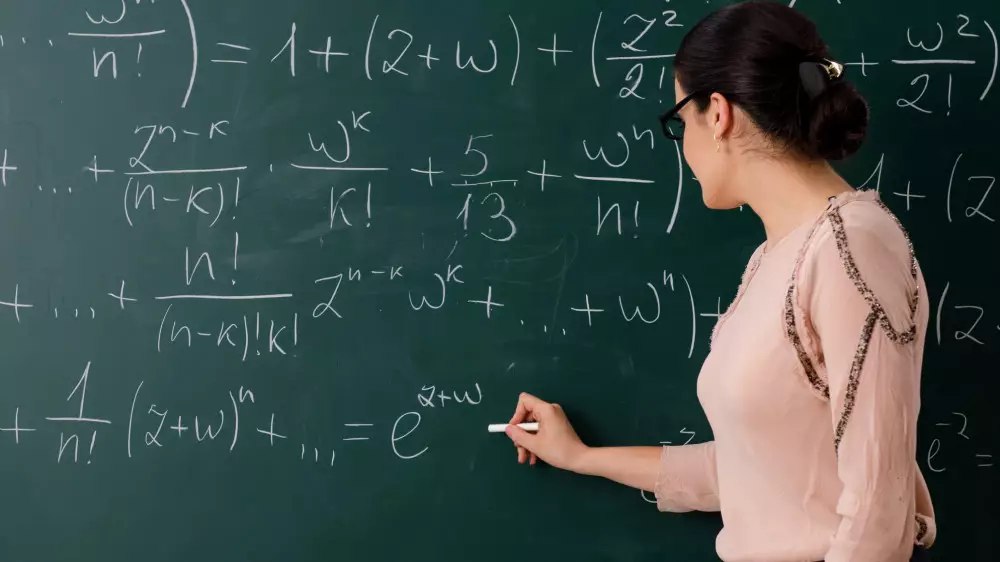 ... w^n/n! ) = 1 + (z + w) + (z^2/2! + w^2/2!)
+ ... + z^{n-k}/(n-k)! · w^k/k! + 5/!3 + w^n/n! ) + 1 + (z
+ ... + n!/(n-k)!k! z^{n-k} w^k + ... + w^n) + (z
+ 1/n! (z+w)^n + ... = e^{z+w} e^{-z} =